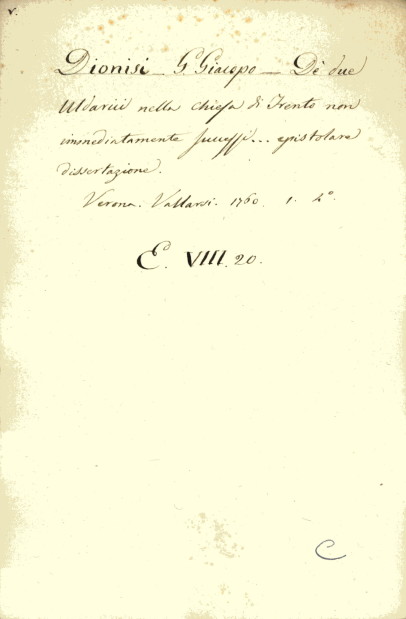 v.
Dionisi _ G. Giacopo _ De' due
Uldarici nella chiesa di Trento non
immediatamente successi... epistolare
dissertazione.
Verona. Vallarsi. 1760. 1. 4°.
E. VIII. 20.
C